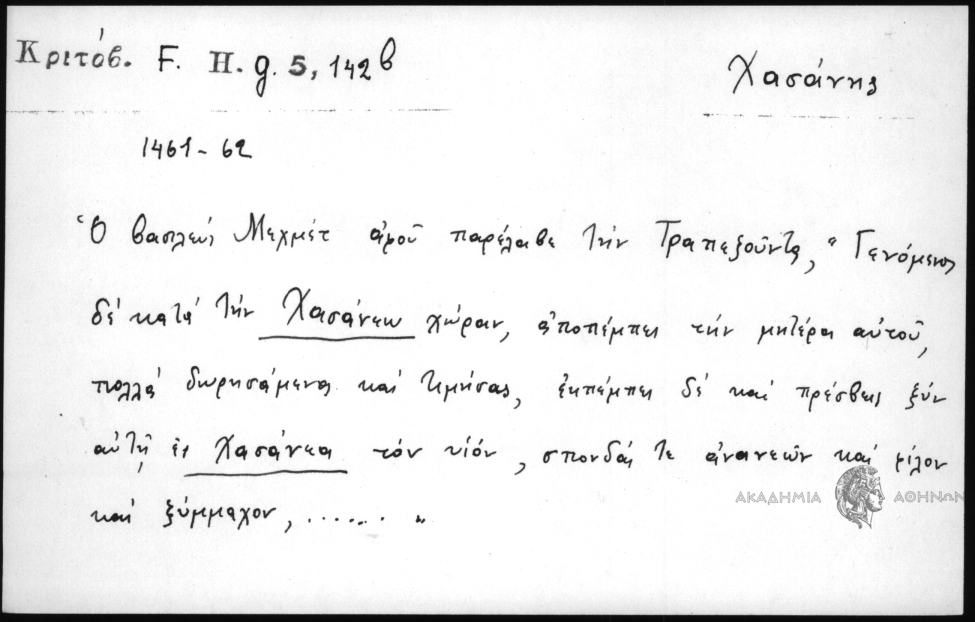 Κριτόβ. F. H. g. 5, 142 b
Χασάνης
1461 - 62
Ὁ βασιλεύς Μεχμέτ ἀφοῦ παρέλαβε τήν Τραπεζοῦντα, " Γενόμενος
δέ κατά τήν Χασάνεω χώραν, ἀποπέμπει τήν μητέρα αὐτοῦ,
πολλά δωρησάμενος καί τιμήσας, ἐκπέμπει δέ καί πρέσβεις ξύν
αὐτῇ ἐς Χασάνεα τόν υἱόν, σπονδάς τε ἀνανεῶν καί φίλον
καί ξύμμαχον, ....... "
ΑΚΑΔΗΜΙΑ ΑΘΗΝΩΝ